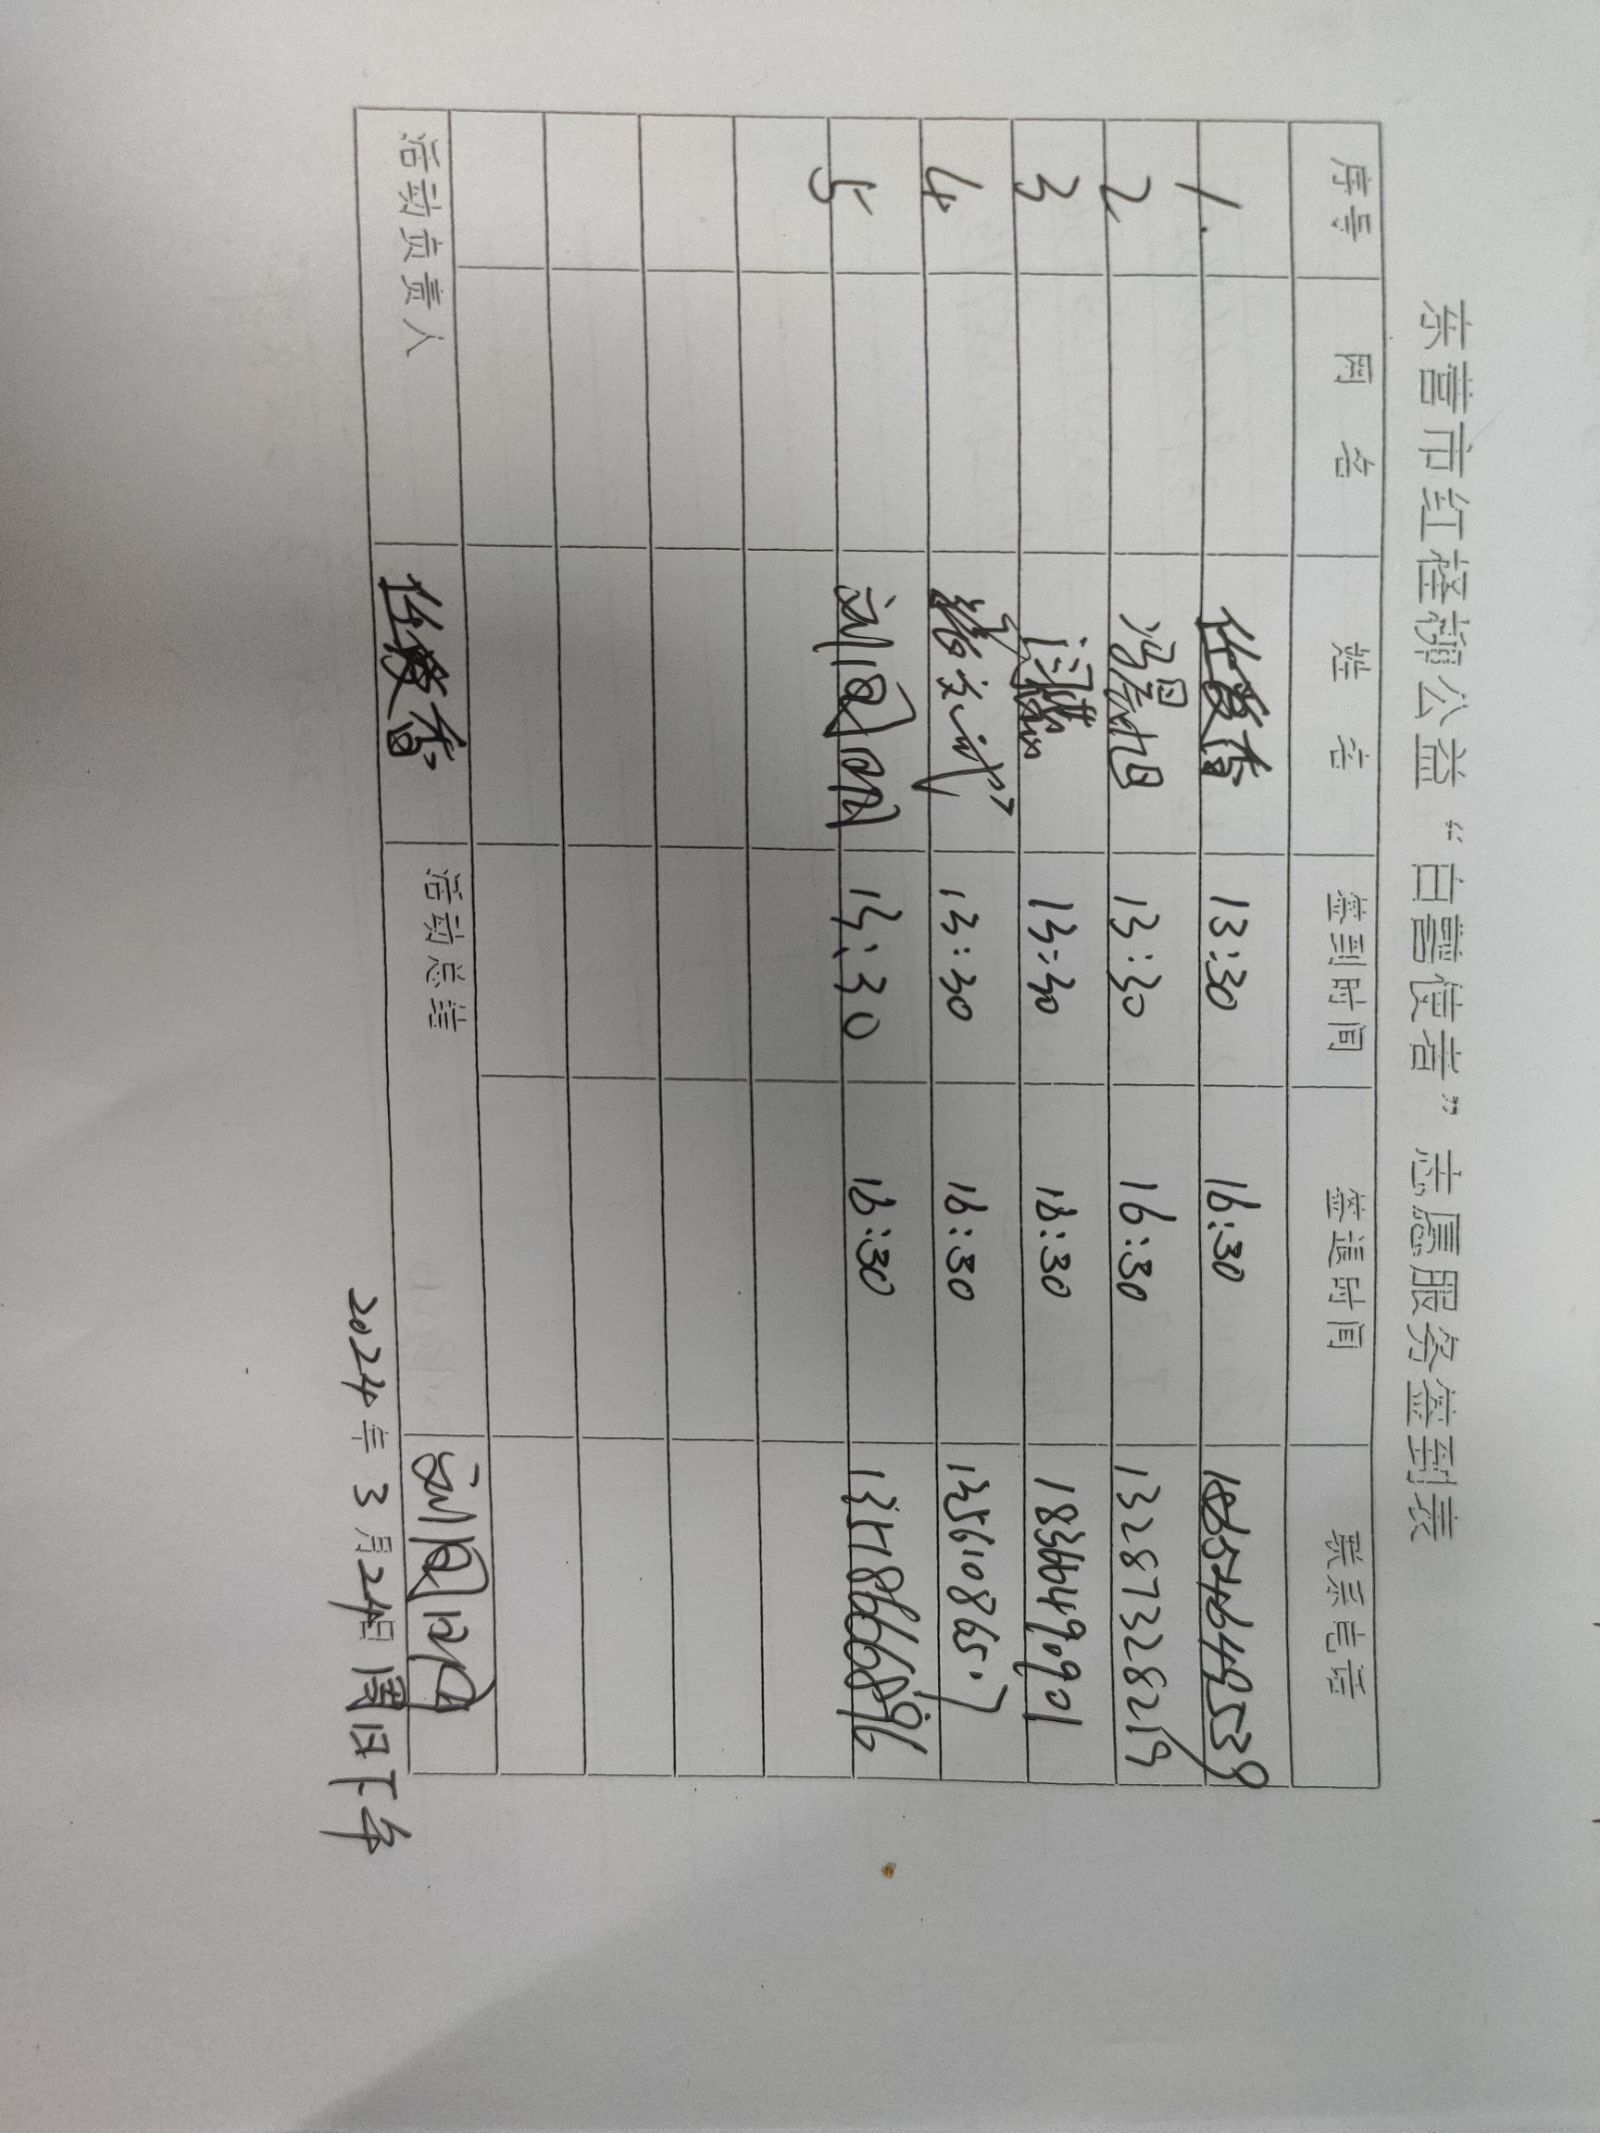 东营市红柽柳公益“白鹭使者”志愿服务签到表
序号 网名 姓名 签到时间 签退时间 联系电话
1. 任俊香 13:30 16:30 18554649539
2 冯晨旭 13:30 16:30 13287328219
3 13:30 16:30 18366490901
4 13:30 16:30 13561086507
5 13:30 16:30
活动负责人 任俊香 活动总结
2024年3月24日周日下午